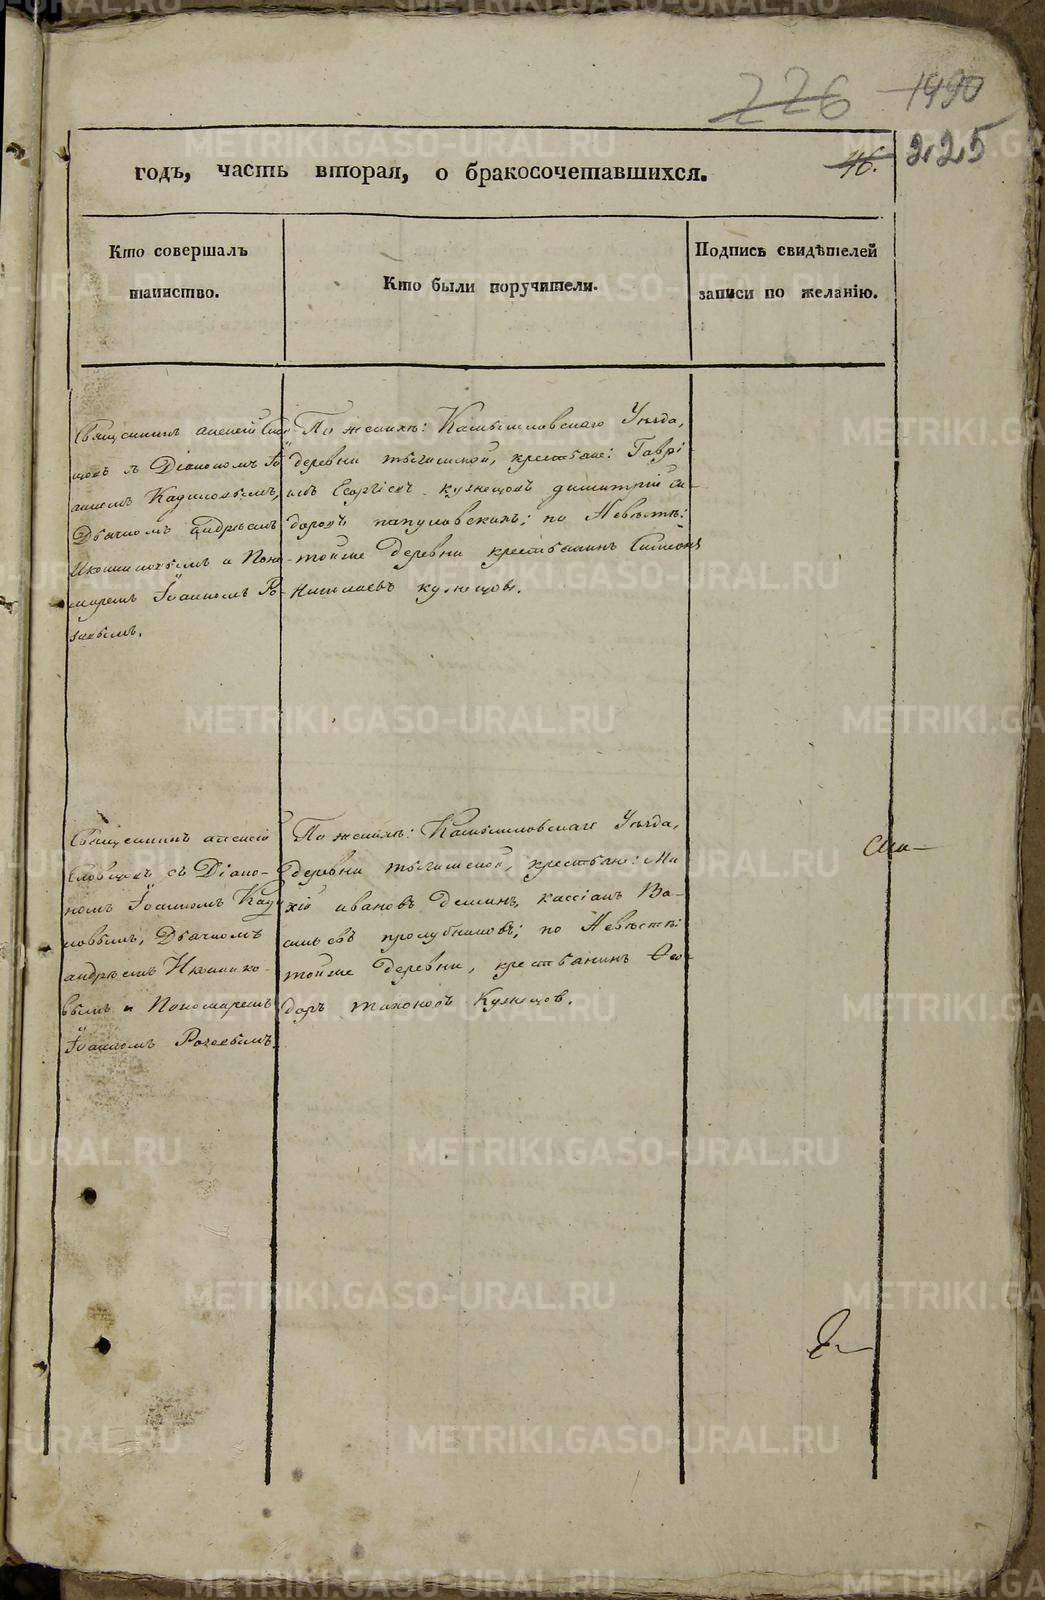 226 1490
годъ, часть вторая, о бракосочетавшихся.
46.
225
Кто совершалъ
таинство.
Кто были поручители.
Подпись свидѣтелей
записи по желанію.
Священникъ алексій
съ Діакономъ Іо-
анномъ Кадиловымъ,
Дьячкомъ андреемъ
Икошниковымъ и Поно-
маремъ Іоанномъ Ро-
По женихѣ: Камышловскаго Уѣзда,
деревни крестьяне: Гаврі-
илъ Георгіевъ кузнецовъ димитрій Си-
доровъ папуловскихъ; по Невѣстѣ:
тойже деревни крестьянинъ Симеонъ
Николаевъ кузнецовъ.
Священникъ алексій
Словцовъ, съ Діако-
номъ Іоанномъ Кади-
ловымъ, Дьячкомъ
андреемъ Икошнико-
вымъ и Пономаремъ
Іоанномъ
По женихѣ: Камышловскаго Уѣзда,
деревни крестьяне:
ивановъ Деминъ, кассіанъ Ва-
сильевъ пролубниковъ; по Невѣстѣ:
тойже деревни, крестьянинъ Ѳео-
доръ Кузнецовъ.
METRIKI.GASO-URAL.RU